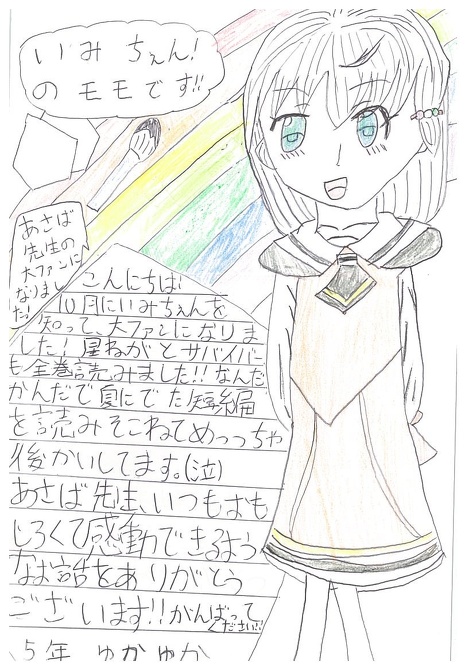 いみちぇん!
のモモです!!
あさば
先生の
大ファンに
なりまし
たっ
こんにちは
10月にいみちぇんを
知って、大ファンになりま
した!星ねがとサバイバー
も全巻読みました!!なんだ
かんだで夏にでた短編
を読みそこねてめっっちゃ
後かいしてます。(泣)
あさば先生、いつもおも
しろくて感動できるよう
なお話をありがとう
ございます!!がんばって
ください!!
5年 ゆかゆか